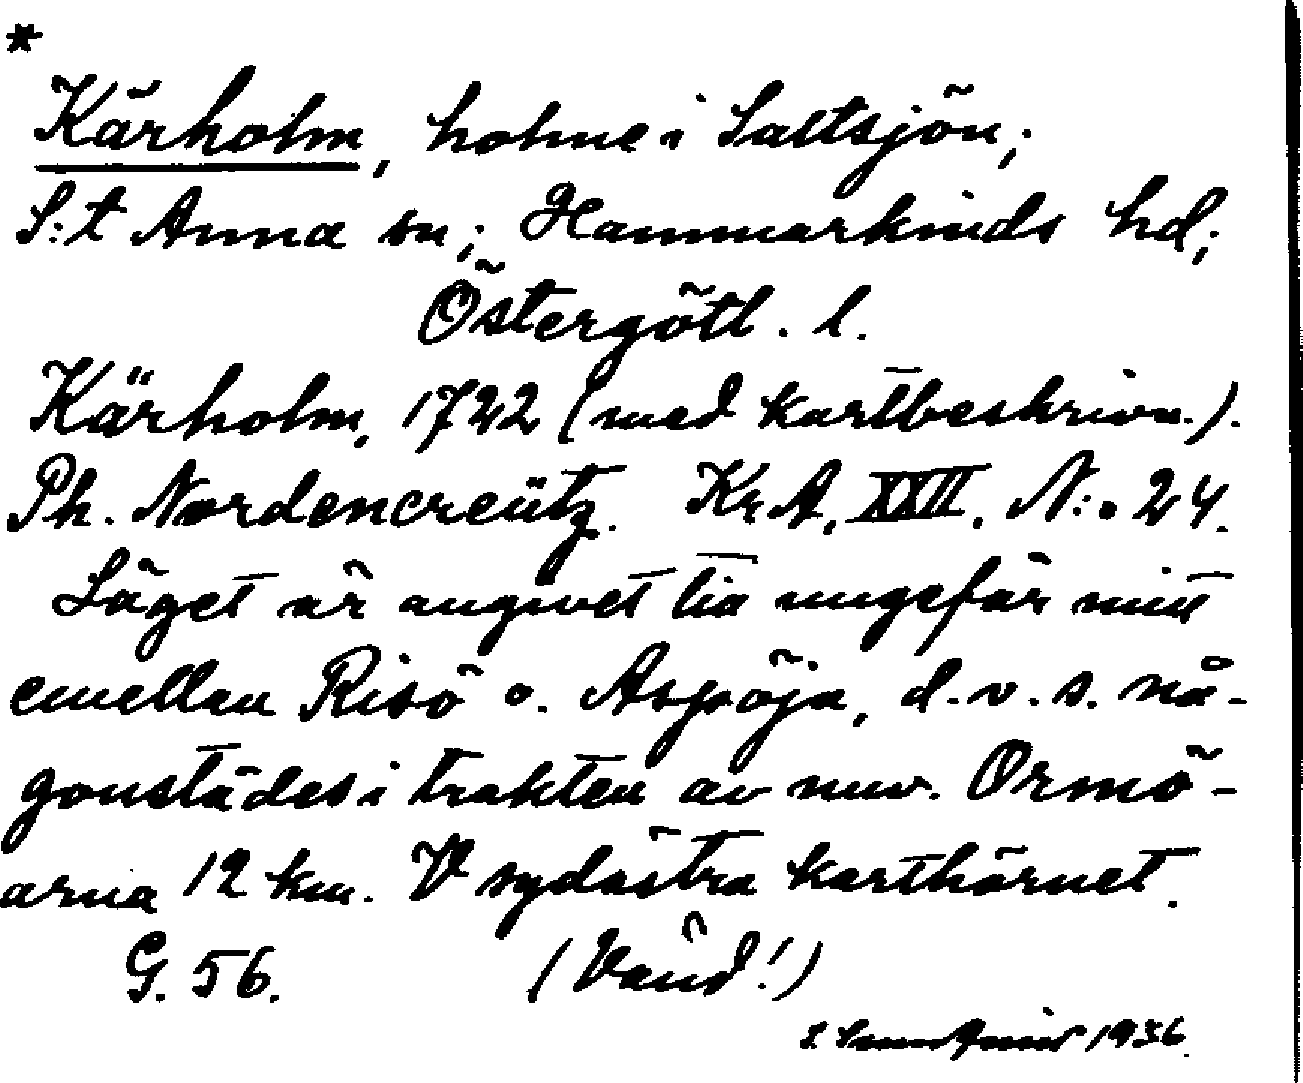 *
Kärholm, holme i Saltsjön;
S:t Anna sn; Hammarkinds hd;
Östergötl. l.
Kärholm, 1722 (med kartbeskrivn.).
Ph. Nordencreütz. Kr.A. XXII. N:o 24.
Läget är angivet lia ungefär mitt
emellan Risö o. Aspöja, d.v.s. nå-
gonstädes i trakten av nuv. Ormö-
arna 12 km. V sydöstra karthörnet.
G. 56. (Vänd!)
1936.